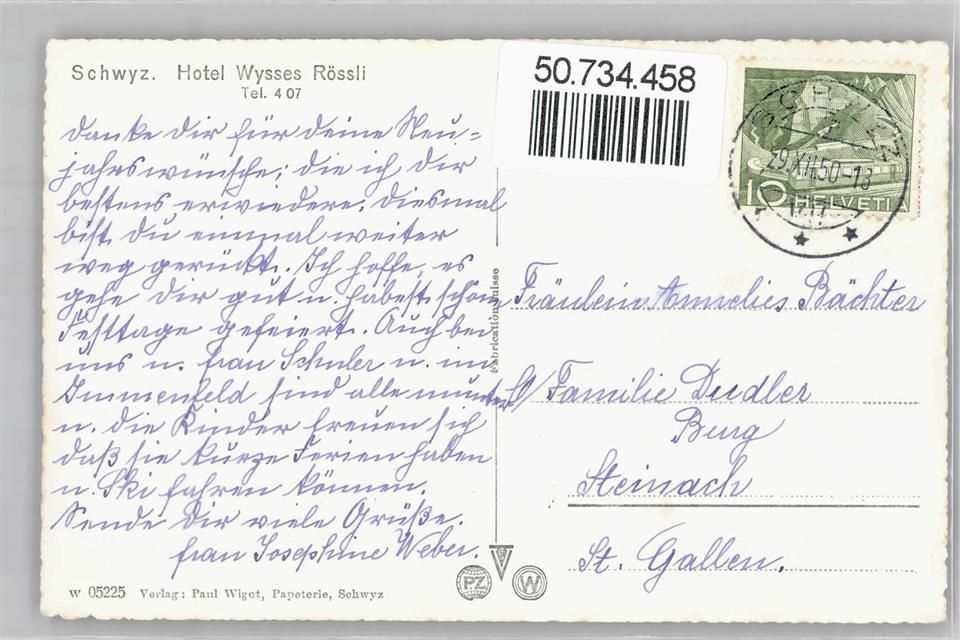 Schwyz. Hotel Wysses Rössli
Tel. 4 07
50.734.458
SCHWYZ
29.XII.50-18
10 HELVETIA
danke dir für deine Neu=
jahrswünsche; die ich dir
bestens erwiedere. diesmal
bist du einmal weiter
weg gerückt. Ich hoffe, es
gehe dir gut u. habest schöne
Festtage gefeiert. Auch bei
uns u. frau Schuler u. im
Immenfeld sind alle munter
u. die Kinder freuen sich
daß sie kurze Ferien haben
u. Ski fahren können.
Sende dir viele Grüße.
frau Josephine Weber.
Fabrication Suisse
Fräulein Annelies Bächter
c/ Familie Dudler
Burg
Steinach
St. Gallen.
W 05225 Verlag: Paul Wiget, Papeterie, Schwyz
PZ
W